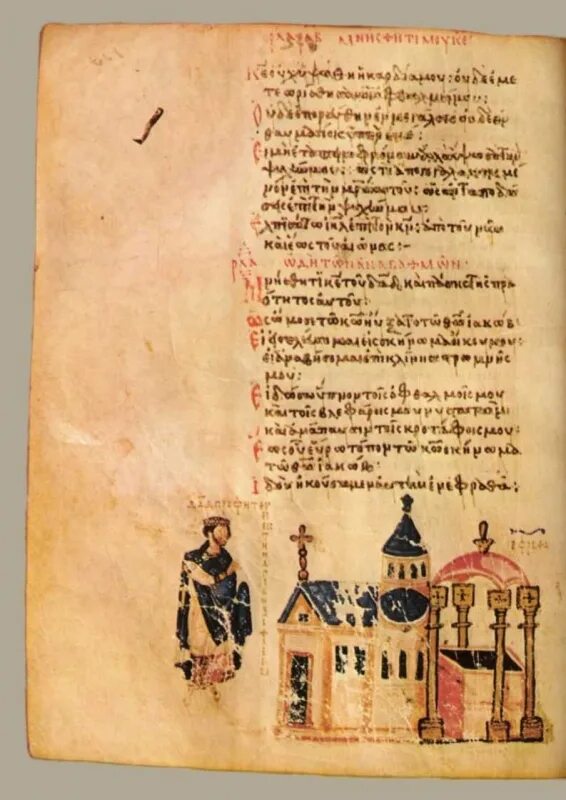 Κε οὐχ ὑψώθη ἡ καρδία μου· οὐδὲ ἐμε
τεωρίσθησαν οἱ ὀφθαλμοί μου:
Οὐδὲ ἐπορεύθην ἐν μεγάλοις οὐδὲ ἐν
θαυμασίοις ὑπὲρ ἐμέ:
Εἰ μὴ ἐταπεινοφρόνουν ἀλλὰ ὕψωσα τὴν
ψυχήν μου: ὡς τὸ ἀπογεγαλακτισμέ
νον ἐπὶ τὴν μητέρα αὐτοῦ: ὡς ἀνταποδώ
σεις ἐπὶ τὴν ψυχήν μου:
Ἐλπισάτω ιηλ ἐπὶ τὸν κν: ἀπὸ τοῦ νῦν
καὶ ἕως τοῦ αἰῶνος:-
ρλα ᾠδὴ τῶν ἀναβαθμῶν
Μνήσθητι κε τοῦ δαδ καὶ πάσης τῆς πρα
ότητος αὐτοῦ:
Ὡς ὤμοσε τῶ κω ηὔξατο τῶ θω ἰακώβ:
Εἰ εἰσελεύσομαι εἰς σκήνωμα οἴκου μου:
εἰ ἀναβήσομαι ἐπὶ κλίνης στρωμνῆς
μου:
Εἰ δώσω ὕπνον τοῖς ὀφθαλμοῖς μου
καὶ τοῖς βλεφάροις μου νυσταγμόν
καὶ ἀνάπαυσιν τοῖς κροτάφοις μου:
Ἕως οὗ εὕρω τόπον τῶ κω σκήνωμα
τῶ θω ἰακώβ:
Ἰδοὺ ἠκούσαμεν αὐτὴν ἐν ἐφραθά: